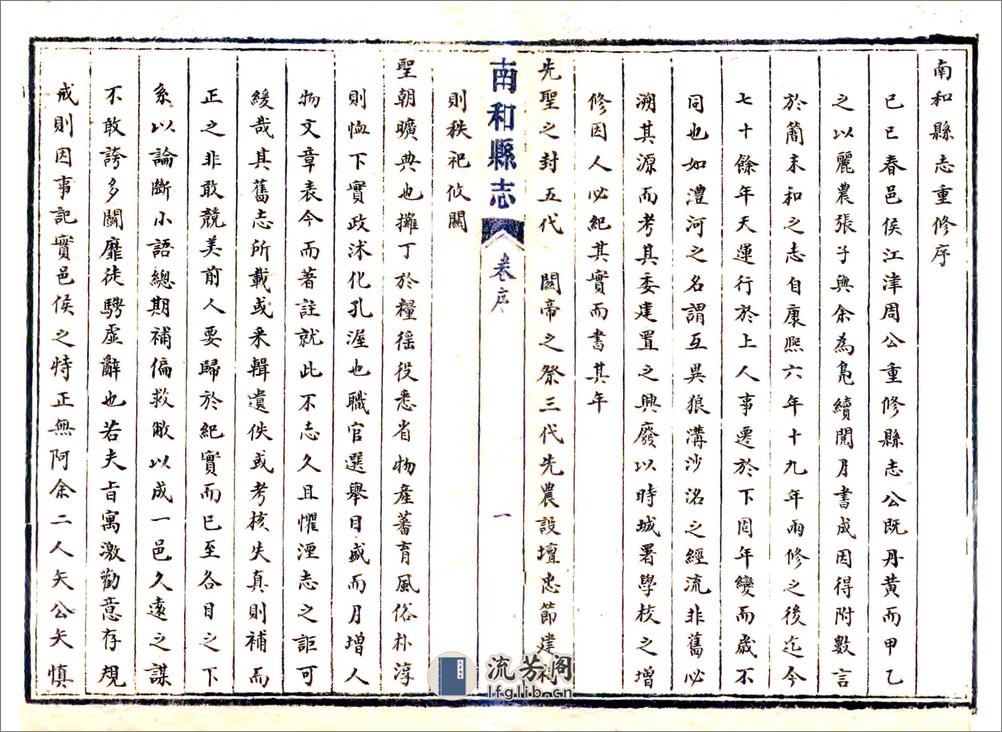 南和縣志重修序
己巳春邑侯江津周公重修縣志公既丹黃而甲乙
之以麗農張子與余為鳧續閱月書成因得附數言
於簡末和之志自康熙六年十九年兩修之後迄今
七十餘年天運行於上人事遷於下周年變而歲不
同也如澧河之名謂互異狼溝沙洺之經流非舊必
溯其源而考其委建置之興廢以時城署學校之增
修因人必紀其實而書其年
先聖之封五代 關帝之祭三代先農設壇忠節建
南和縣志
卷序
一
則秩祀攸關
聖朝曠典也攤丁於糧徭役悉省物產蕃育風俗朴淳
則恤下實政沭化孔渥也職官選舉日盛而月增人
物文章表今而著註就此不志久且懼湮志之詎可
緩哉其舊志所載或采輯遺佚或考核失真則補而
正之非敢競美前人要歸於紀實而已至各目之下
系以論斷小語總期補偏救敝以成一邑久遠之謀
不敢誇多鬭靡徒騁虛辭也若夫旨寓激勸意存規
戒則因事記實邑侯之特正無阿余二人矢公矢慎
流芳阁
lfglib.cn